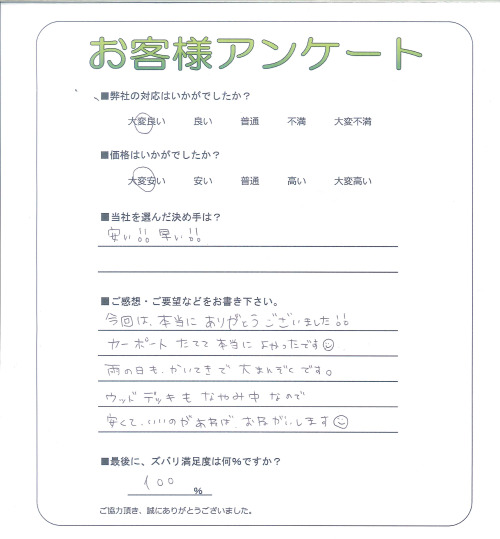 お客様アンケート
■弊社の対応はいかがでしたか？
大変良い 良い 普通 不満 大変不満
■価格はいかがでしたか？
大変安い 安い 普通 高い 大変高い
■当社を選んだ決め手は？
安い!! 早い!!
■ご感想・ご要望などをお書き下さい。
今回は、本当に ありがとう ございました!!
カーポート たてて 本当に よかったです
雨の日も、かいてきで 大まんぞくです。
ウッドデッキも なやみ中 なので
安くて、いいのがあれば、おねがいします
■最後に、ズバリ満足度は何％ですか？
100 ％
ご協力頂き、誠にありがとうございました。